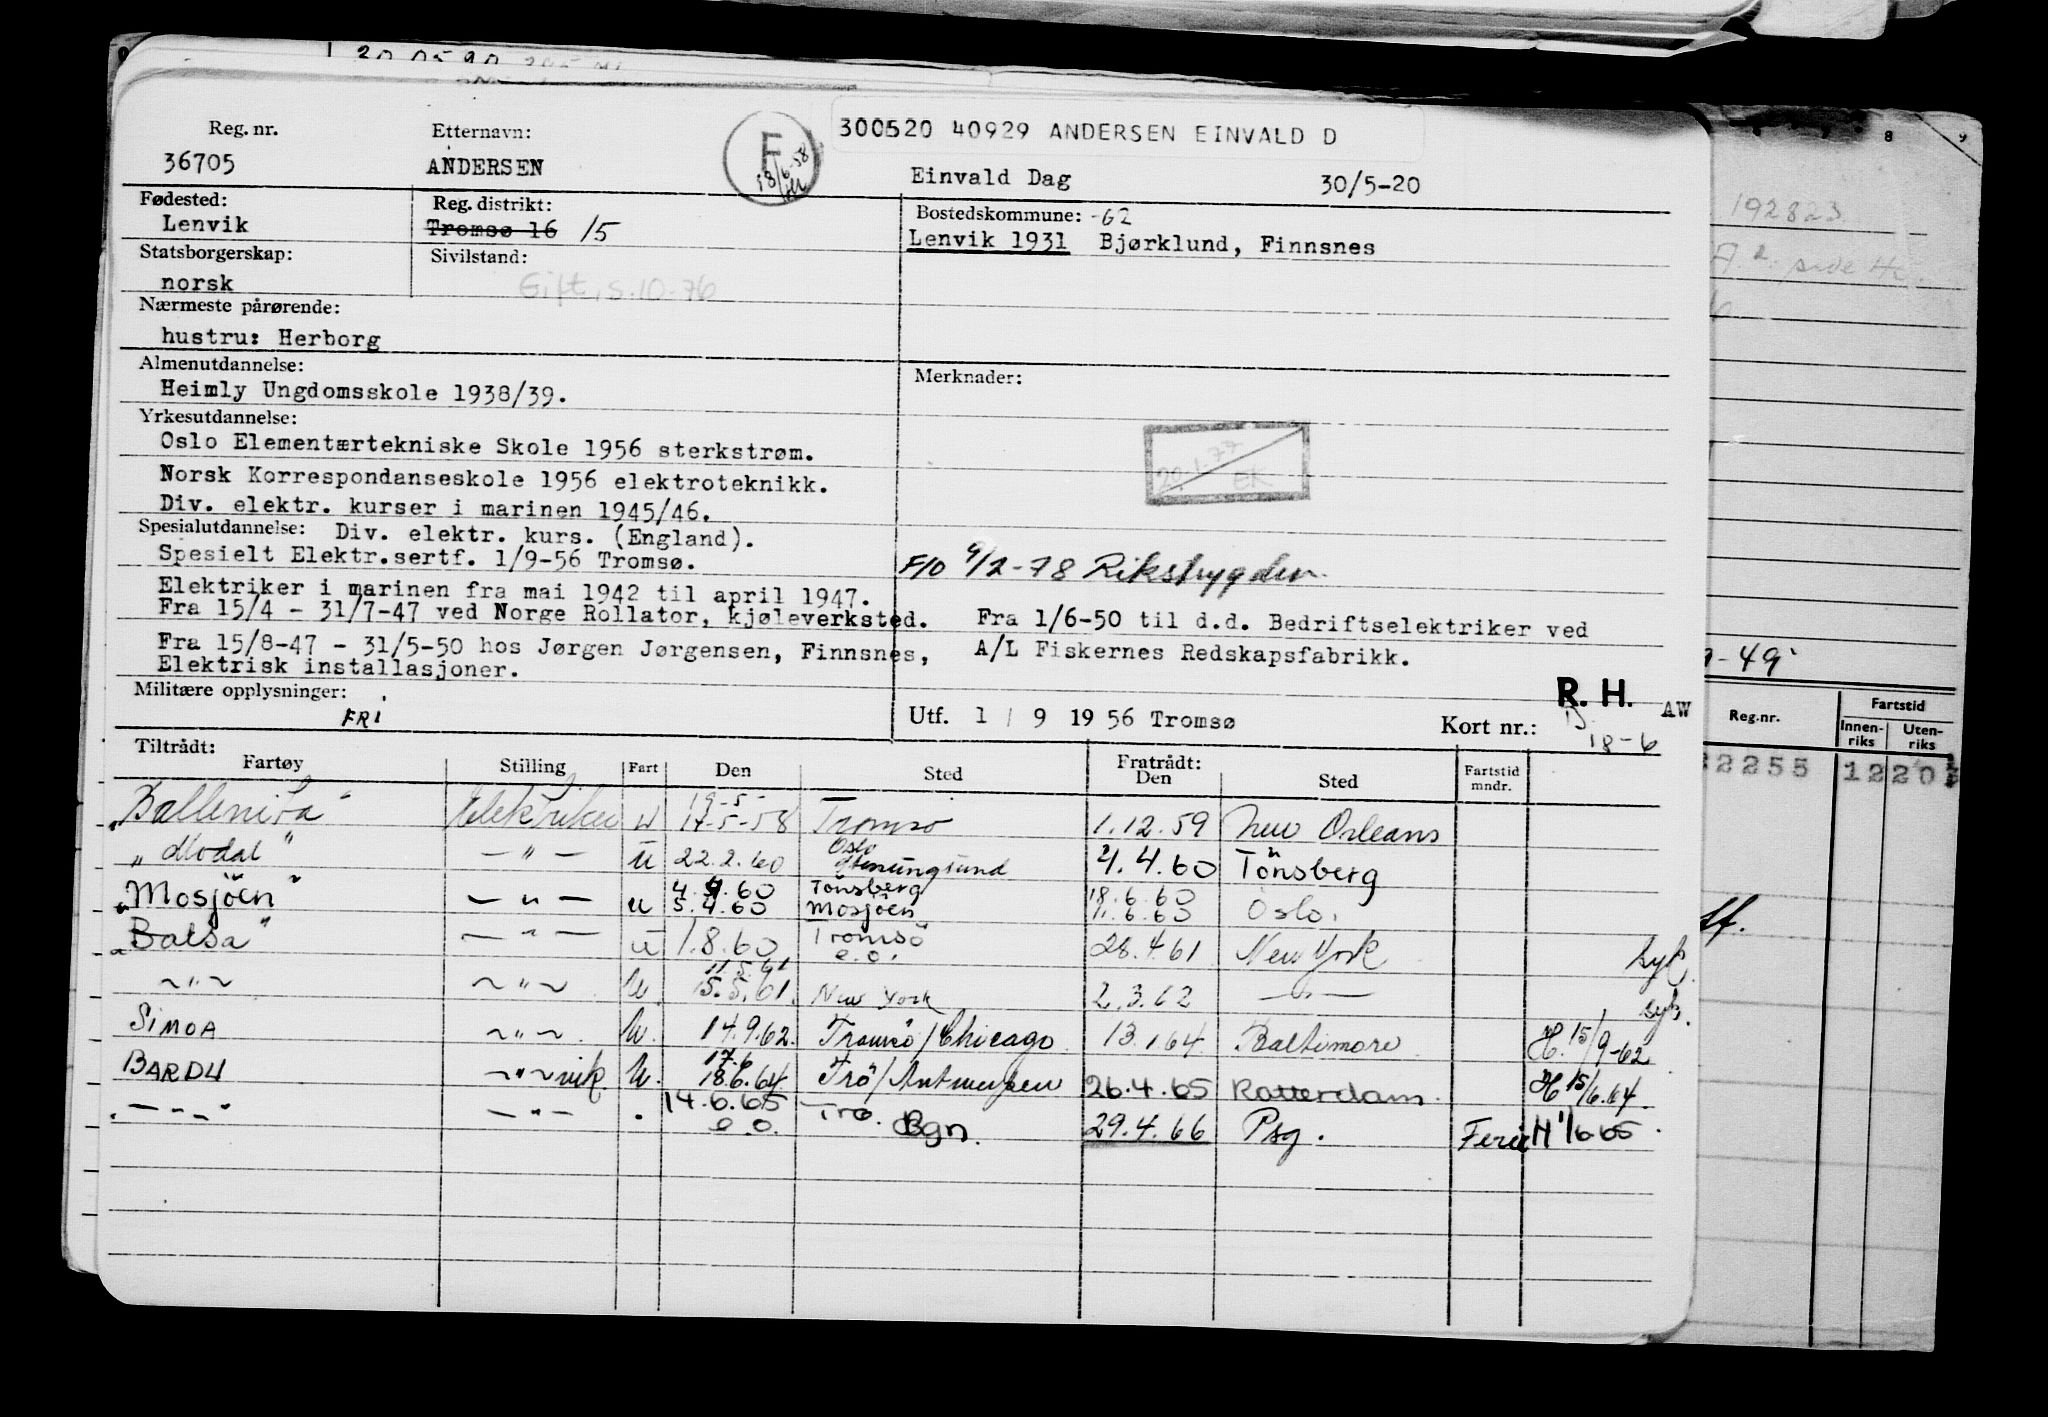 Reg. nr. Etternavn: 300520 40929 ANDERSEN EINVALD D
36705 ANDERSEN F 18/6-58 Einvald Dag 30/5-20
Fødested: Reg. distrikt: Bostedskommune: -62
Lenvik Tromsø 16 15 Lenvik 1931 Bjørklund, Finnsnes
Statsborgerskap: Sivilstand:
norsk Gift, 5.10-76
Nærmeste pårørende:
hustru: Herborg
Almenutdannelse: Merknader:
Heimly Ungdomsskole 1938/39.
Yrkesutdannelse:
Oslo Elementærtekniske Skole 1956 sterkstrøm.
Norsk Korrespondanseskole 1956 elektroteknikk. 20.1.77 EK
Div. elektr. kurser i marinen 1945/46.
Spesialutdannelse: Div. elektr. kurs. (England).
Spesielt Elektr.sertf. 1/9-56 Tromsø. F/O 9/2-78 Rikstrygden.
Elektriker i marinen fra mai 1942 til april 1947.
Fra 15/4 - 31/7-47 ved Norge Rollator, kjøleverksted. Fra 1/6-50 til d.d. Bedriftselektriker ved
Fra 15/8-47 - 31/5-50 hos Jørgen Jørgensen, Finnsnes, A/L Fiskernes Redskapsfabrikk.
Elektrisk installasjoner.
Militære opplysninger: R. H. AW
FRI Utf. 1 / 9 19 56 Tromsø Kort nr.: 18-6
Tiltrådt: Fratrådt:
Fartøy Stilling Fart Den Sted Den Sted Fartstid mndr.
19-5-
"Ballenita" Elektriker U 17-5-58 Tromsø 1.12.59 New Orleans
Oslo
"Modal" — " — U 22.2.60 Stenungsund 4.4.60 Tönsberg
4.4.60 Tönsberg 18.6.60
"Mosjöen" — " — U 5.4.60 Mosjöen 11.6.60 Oslo.
"Balsa" — " — U 1.8.60 Tromsö e.o. 28.4.61 New York syk.
11.5.61
~ " ~ ~ " ~ U. 15.5.61. New York 2.3.62 — " — syk.
SIMOA ~ " ~ U. 14.9.62. Tromsö/Chicago 13.1.64 Baltimore H. 15/9-62
17.6
BARDU ~ " ~ vik. U. 18.6.64. Trö/Antwerpen 26.4.65 Rotterdam. H 15/6.64.
— " — — " — 14.6.65 e.o. Trö. Bgn. 29.4.66 Psg. Ferie H 1/6-65.
20 05 90
8 9
192823
A 2. side
-49
Reg.nr. Fartstid
Innen-riks Uten-riks
2255 12 20